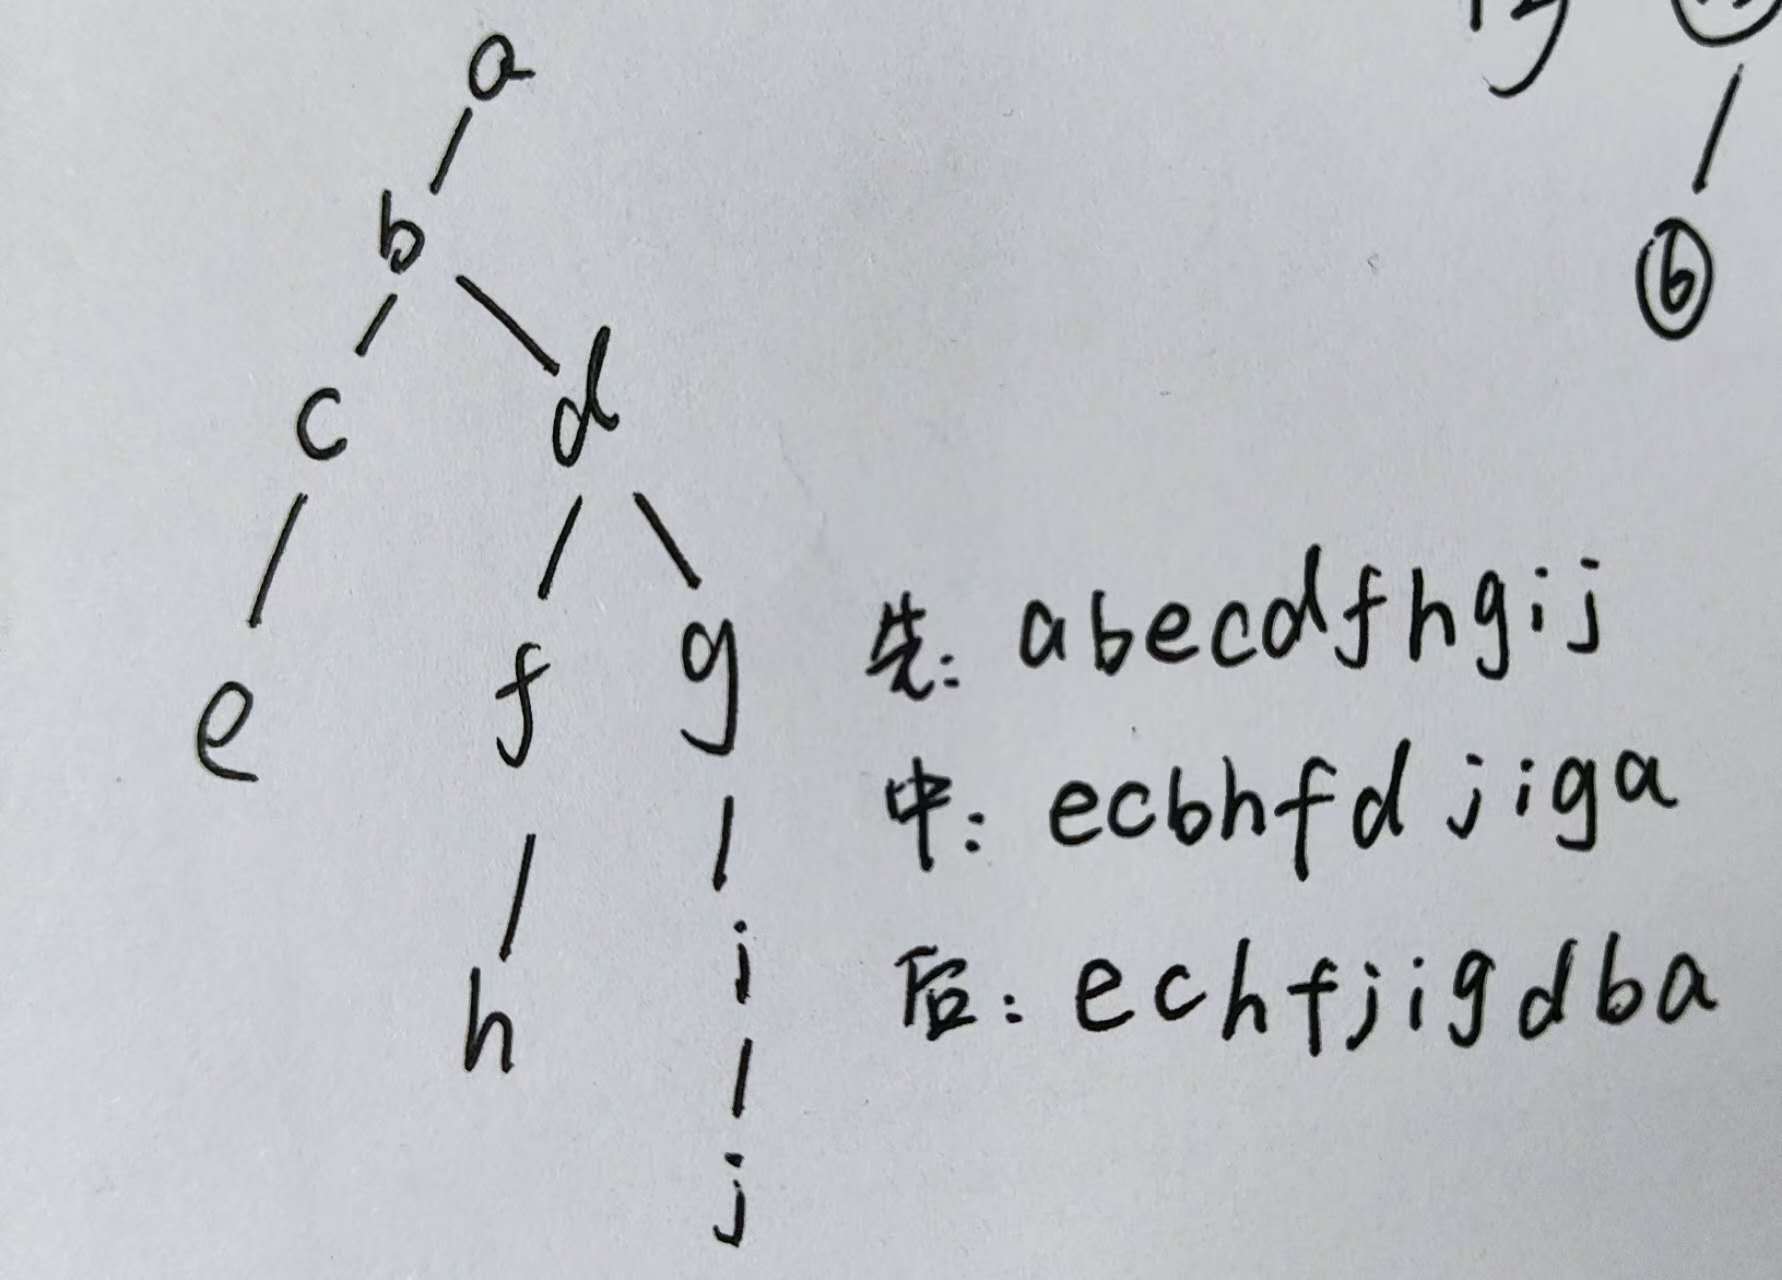 a
b
c d
e f g
h i
j
6
先: abecdfhgij
中: ecbhfd jiga
后: echfjigdba